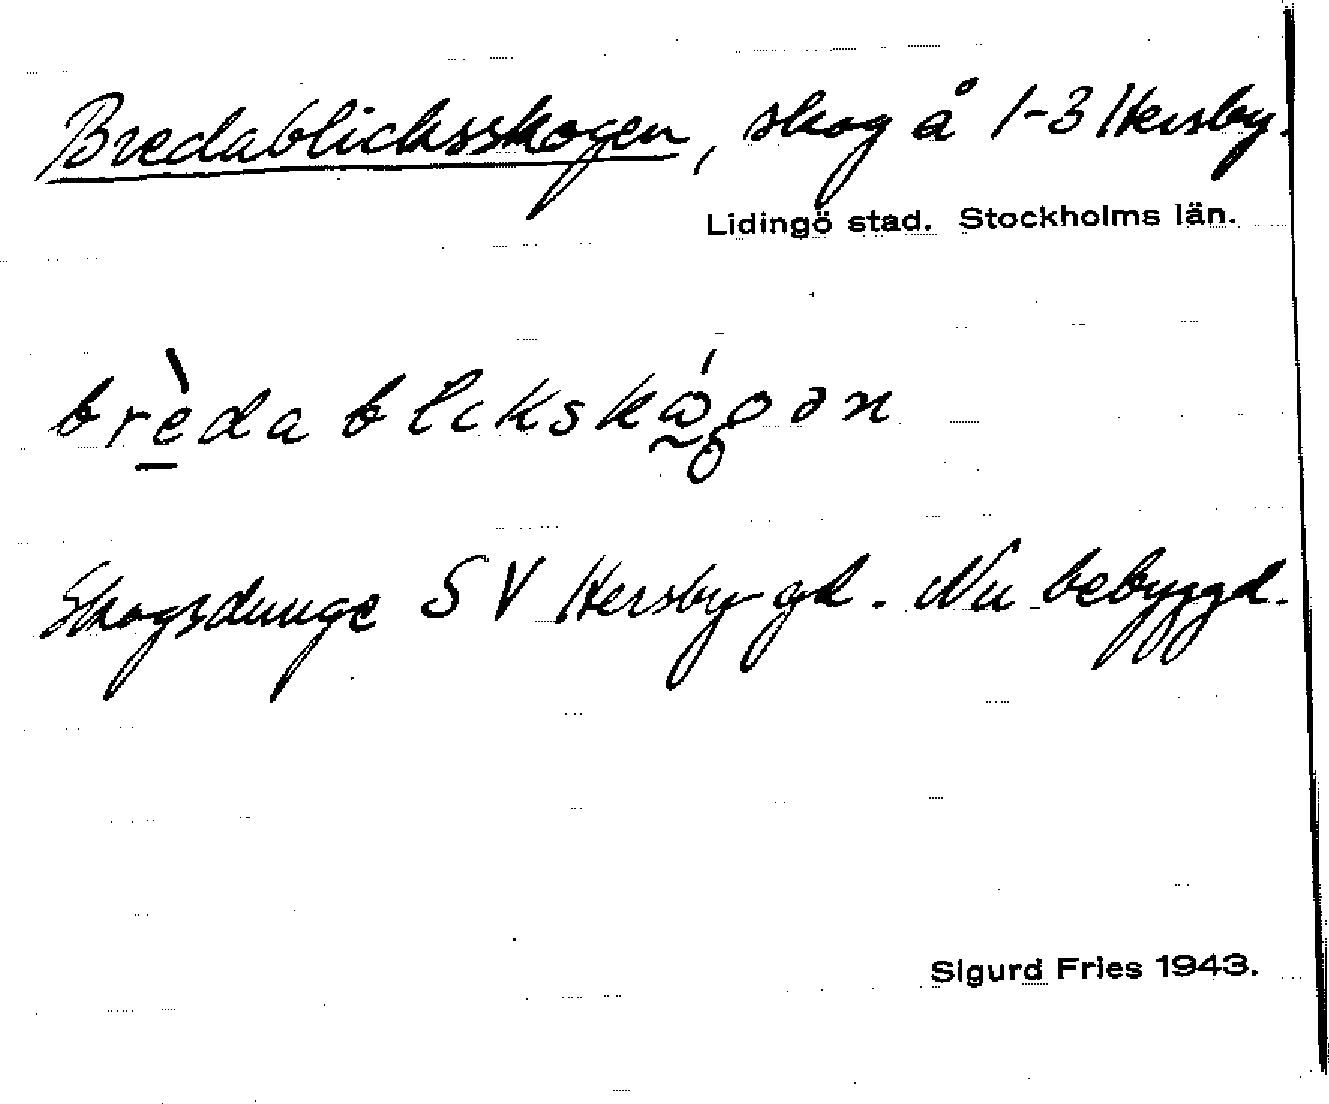 Bredablicksskogen, skog å 1-3 Hersby.
Lidingö stad. Stockholms län.
brèdablikskógən
Skogsdunge SV Hersby gd. Nu bebyggd.
Sigurd Fries 1943.